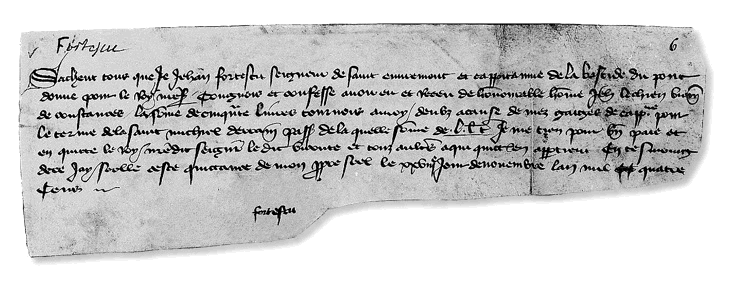 Fortescu
6
Sachent tous que Je Jehan fortescu seigneur de saint euuremont et cappitaine de la bastide du pont
donne pour le Roy Congnois et confesse auoir eu et Receu de honnorable home Jeh lechien
de constances la some de cinqnte liures tournois deub a cause de mes gaiges de capp pour
le terme de la saint michiel derrain pass de la quelle some de Je me tien pour bn paie et
en quicte le Roy mondit seigneur le dit viconte et touz aultres a qui quictance appartient En tesmoing
de ce Jay seelle ceste quictance de mon ppre seel le Jour de nouembre lan mil quatre
Cens
fortescu